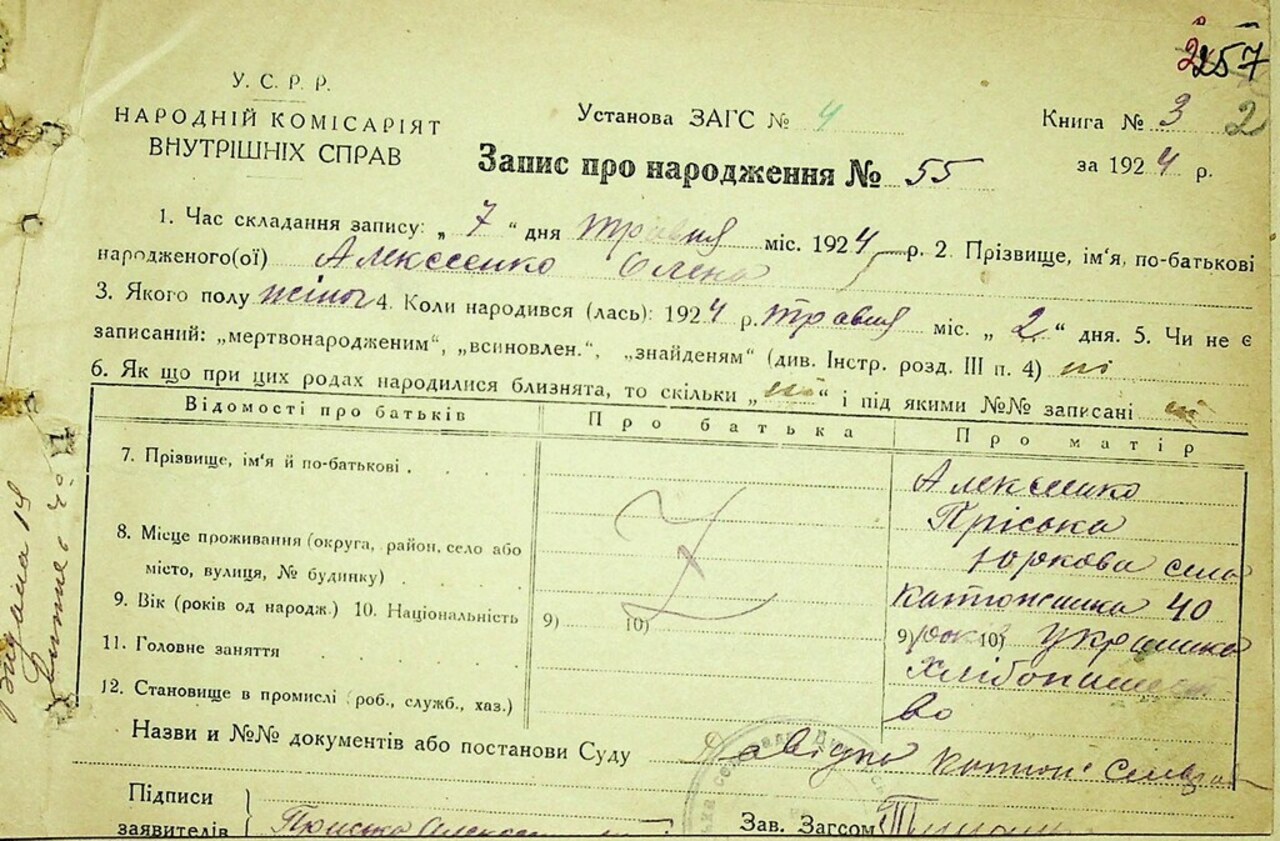 257
2
У. С. Р. Р.
НАРОДНІЙ КОМІСАРІЯТ
ВНУТРІШНІХ СПРАВ
Установа ЗАГС № 4
Книга № 3
за 1924 р.
Запис про народження № 55
1. Час складання запису: „ 7 “ дня травня міс. 1924 р. 2. Прізвище, ім'я, по-батькові
народженого(ої) Алексеенко Олена
3. Якого полу жіноч 4. Коли народився (лась): 1924 р. травня міс. „ 2 “ дня. 5. Чи не є
записаний: „мертвонародженим“, „всиновлен.“, „знайденям“ (див. Інстр. розд. III п. 4) ні
6. Як що при цих родах народилися близнята, то скільки „ ні “ і під якими №№ записані ні
Відомості про батьків Про батька Про матір
7. Прізвище, ім'я й по-батькові Алексеенко
Пріська
8. Місце проживання (округа, район, село або Юркова село
місто, вулиця, № будинку) 40
9. Вік (років од народж.) 10. Національність 9) 10) 9) років 10) україинка
11. Головне заняття Хлібопашест
12. Становище в промислі (роб., служб., хаз.) во
Назви и №№ документів або постанови Суду
Підписи
заявителів
Зав. Загсом